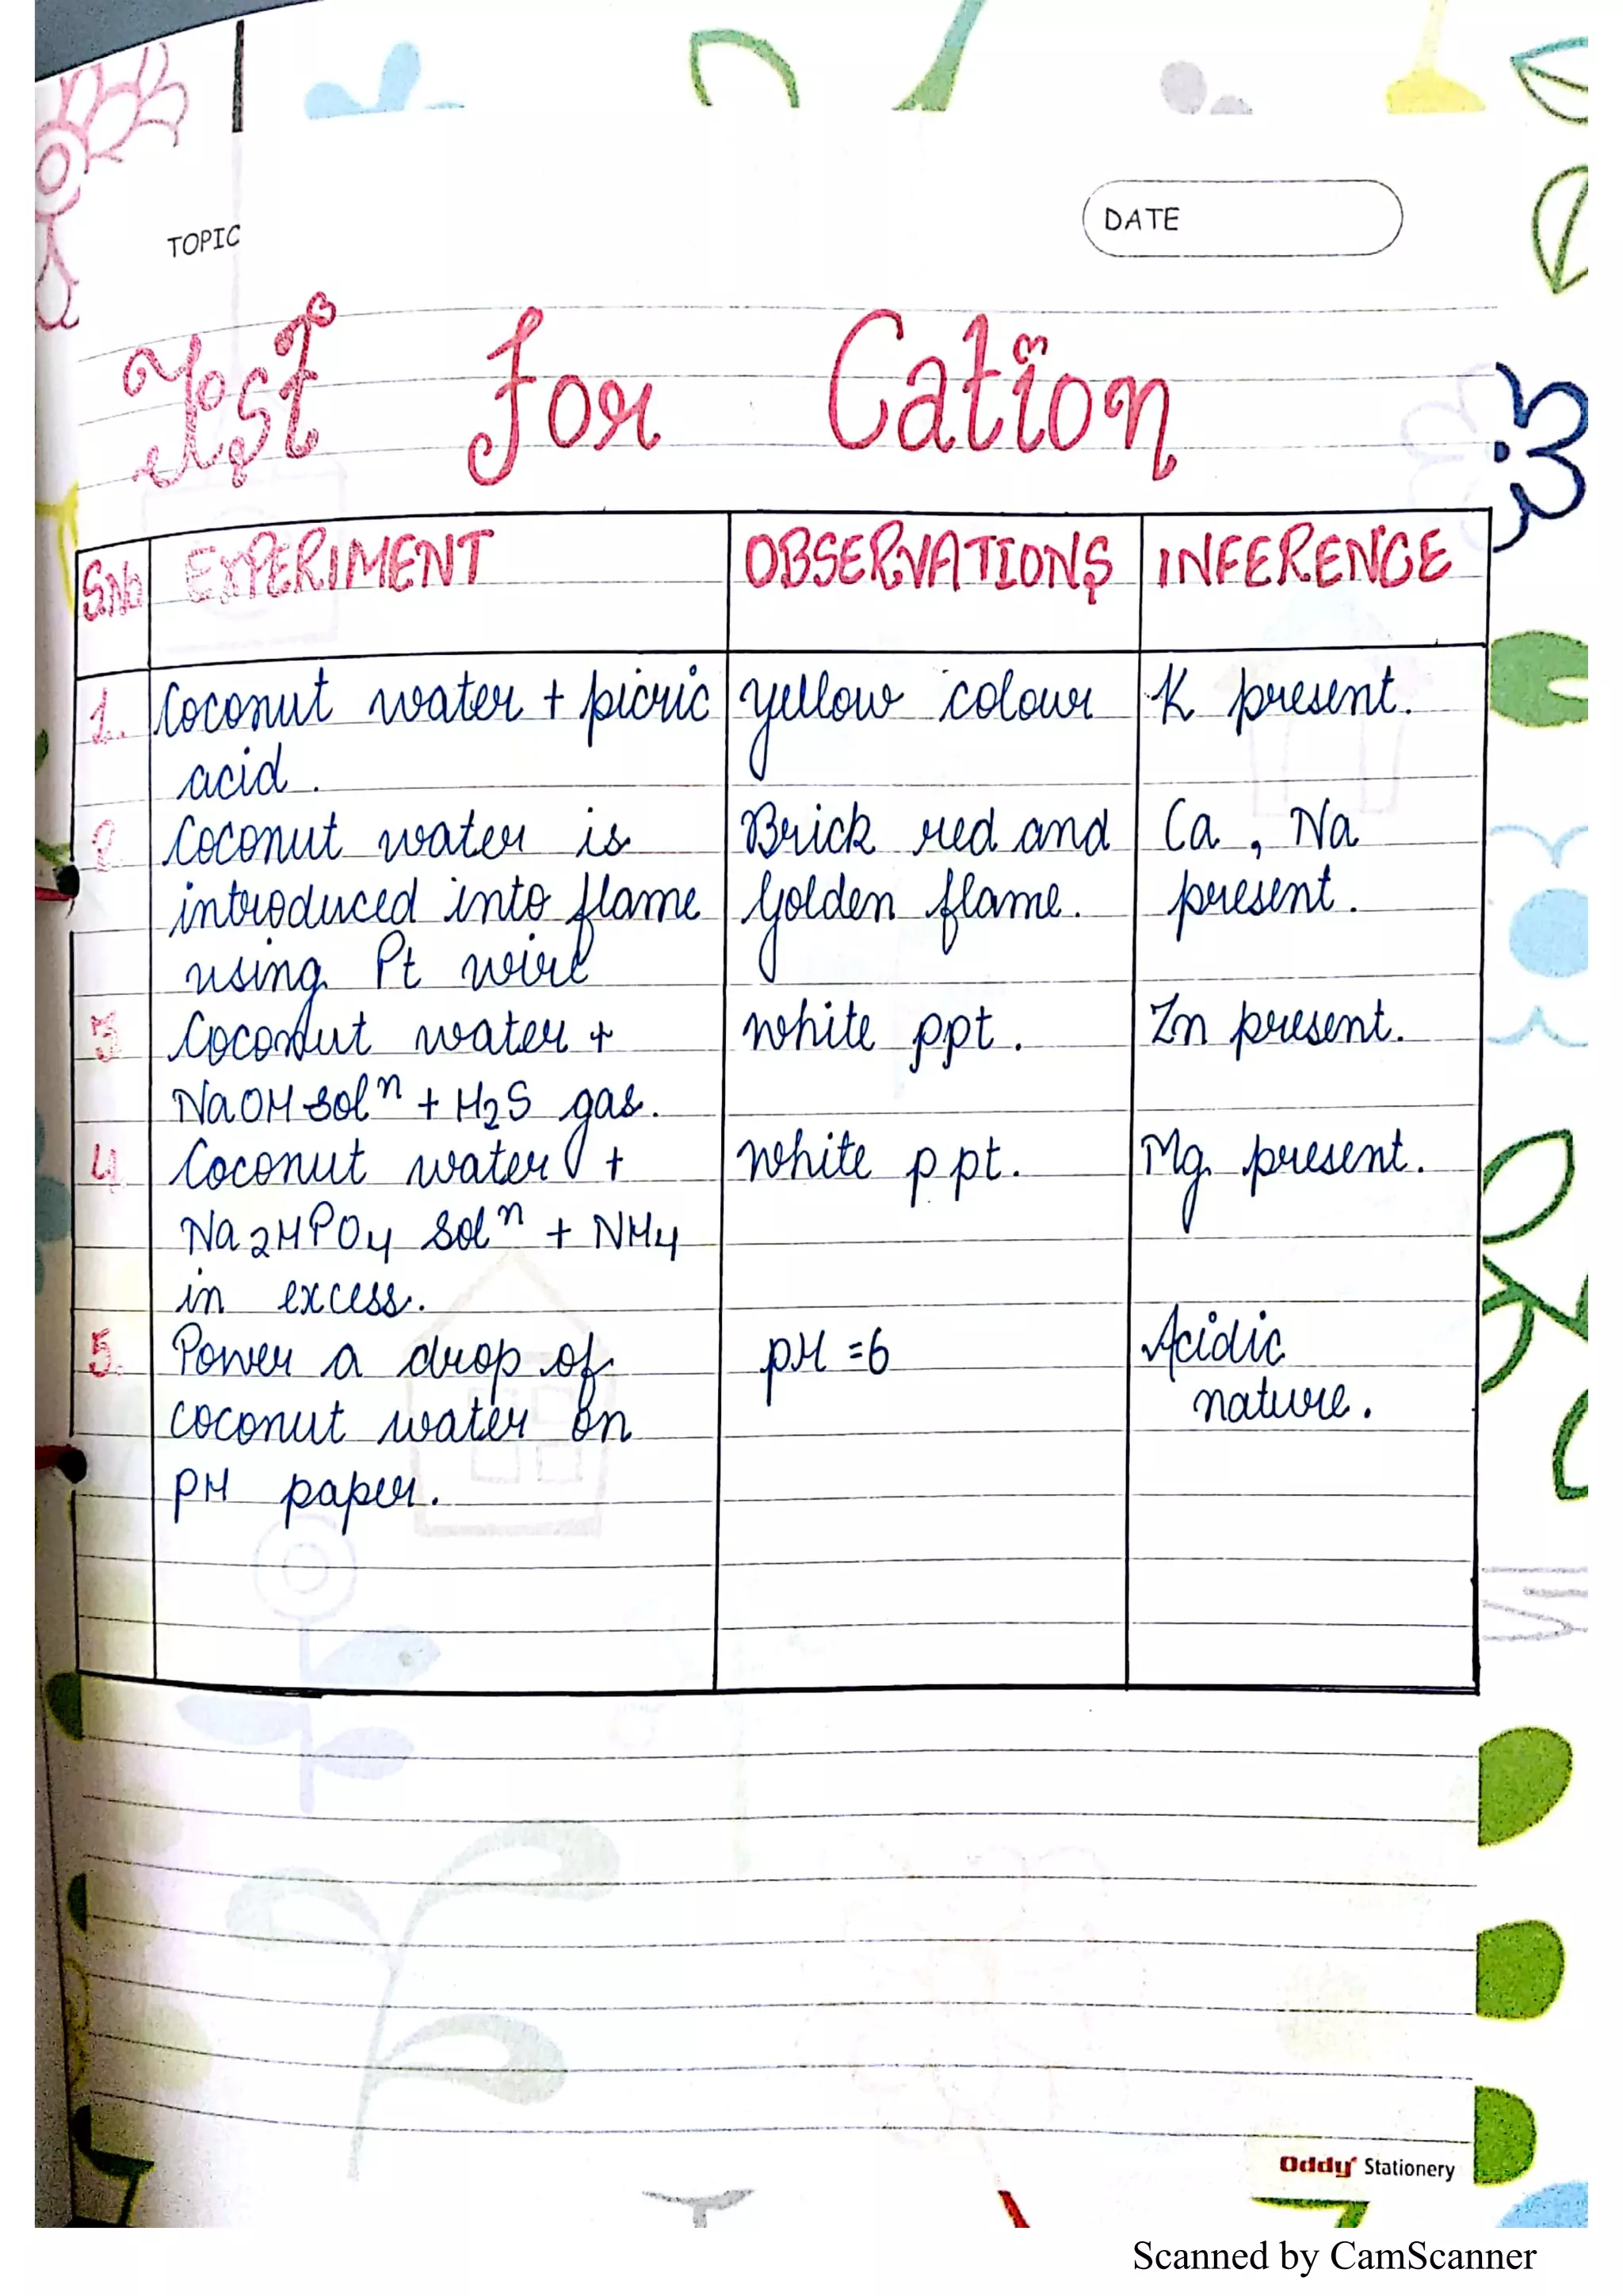 TOPIC
DATE
Test for Cation
S.No EXPERIMENT OBSERVATIONS INFERENCE
1. Coconut water + picric yellow colour K present.
acid.
2. Coconut water is Brick red and Ca, Na
introduced into flame golden flame. present.
using Pt wire
3 Coconut water + white ppt. Zn present.
NaOH solⁿ + H2S gas.
4. Coconut water + white ppt. Mg present.
Na2HPO4 solⁿ + NH4
in excess.
5. Power a drop of pH =6 Acidic
coconut water on nature.
PH paper.
Oddy Stationery
Scanned by CamScanner